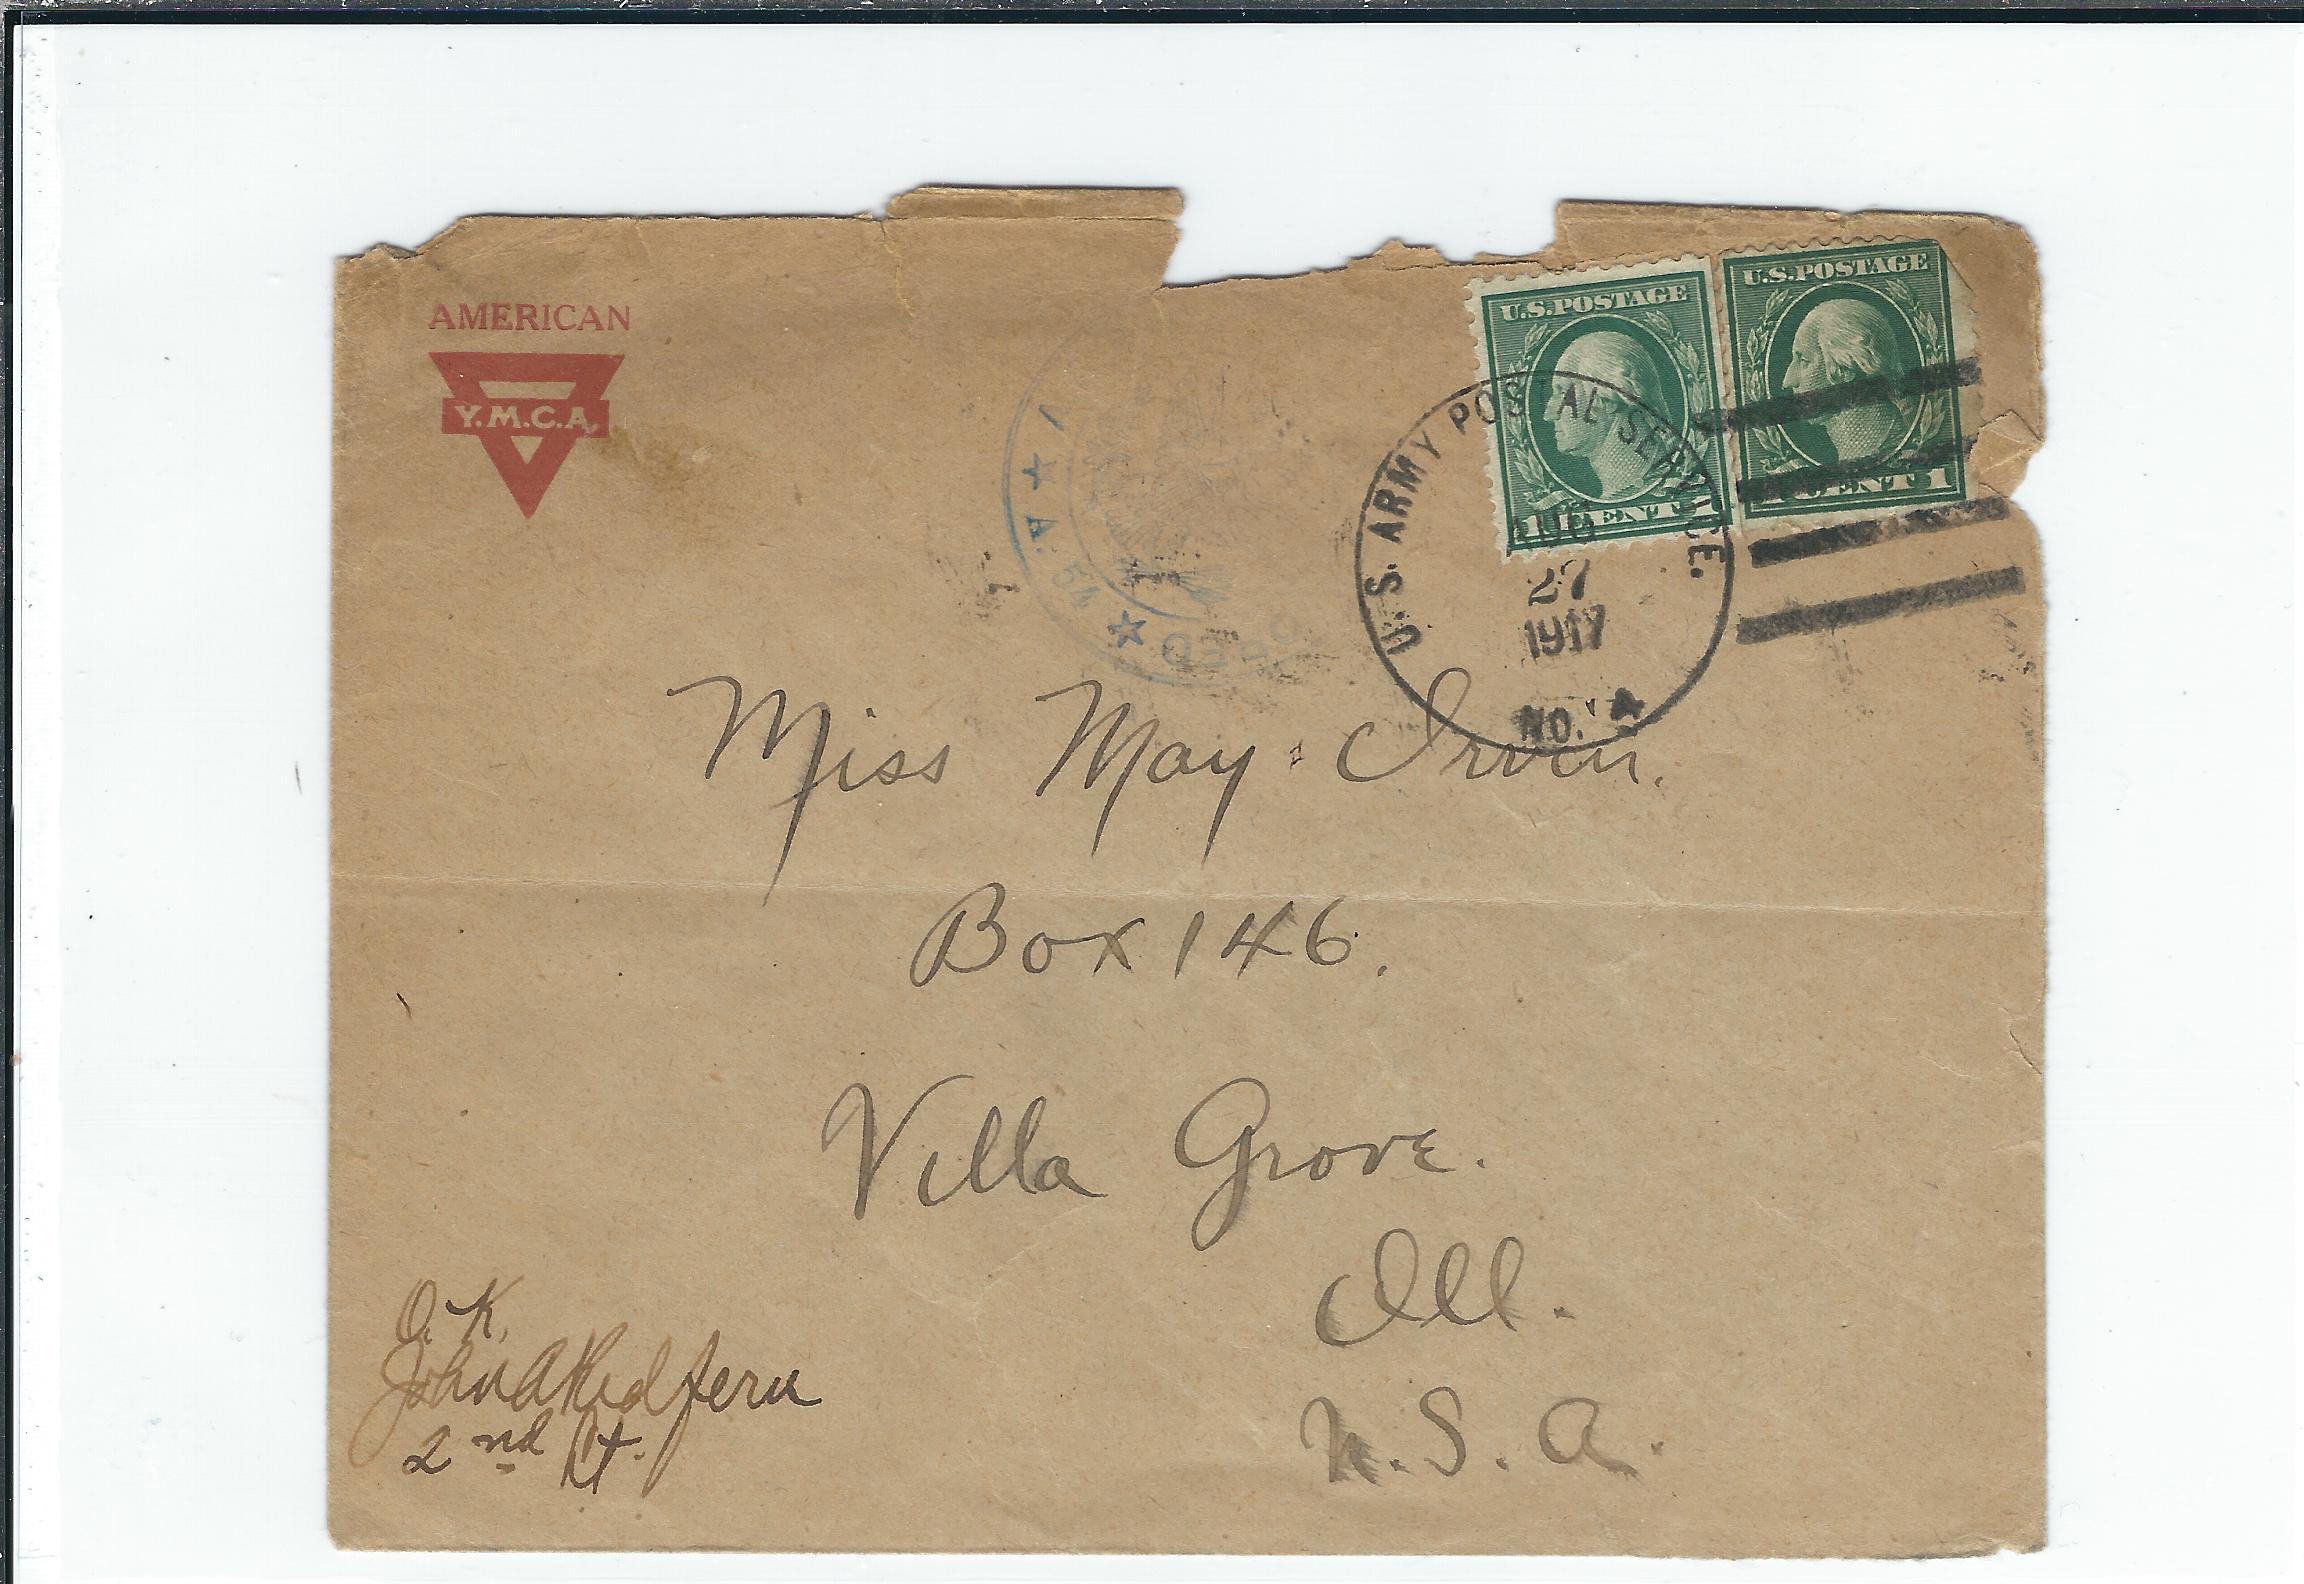 AMERICAN
Y.M.C.A.
U.S. POSTAGE
1 CENT 1
U.S. POSTAGE
1 CENT 1
U.S. ARMY POSTAL SERVICE.
AUG
27
1917
NO. 4
★ A. 5W ★
Miss May Irvin.
Box 146.
Villa Grove.
Ill.
U.S.A.
O.K.
John A Redfern
2nd Lt.